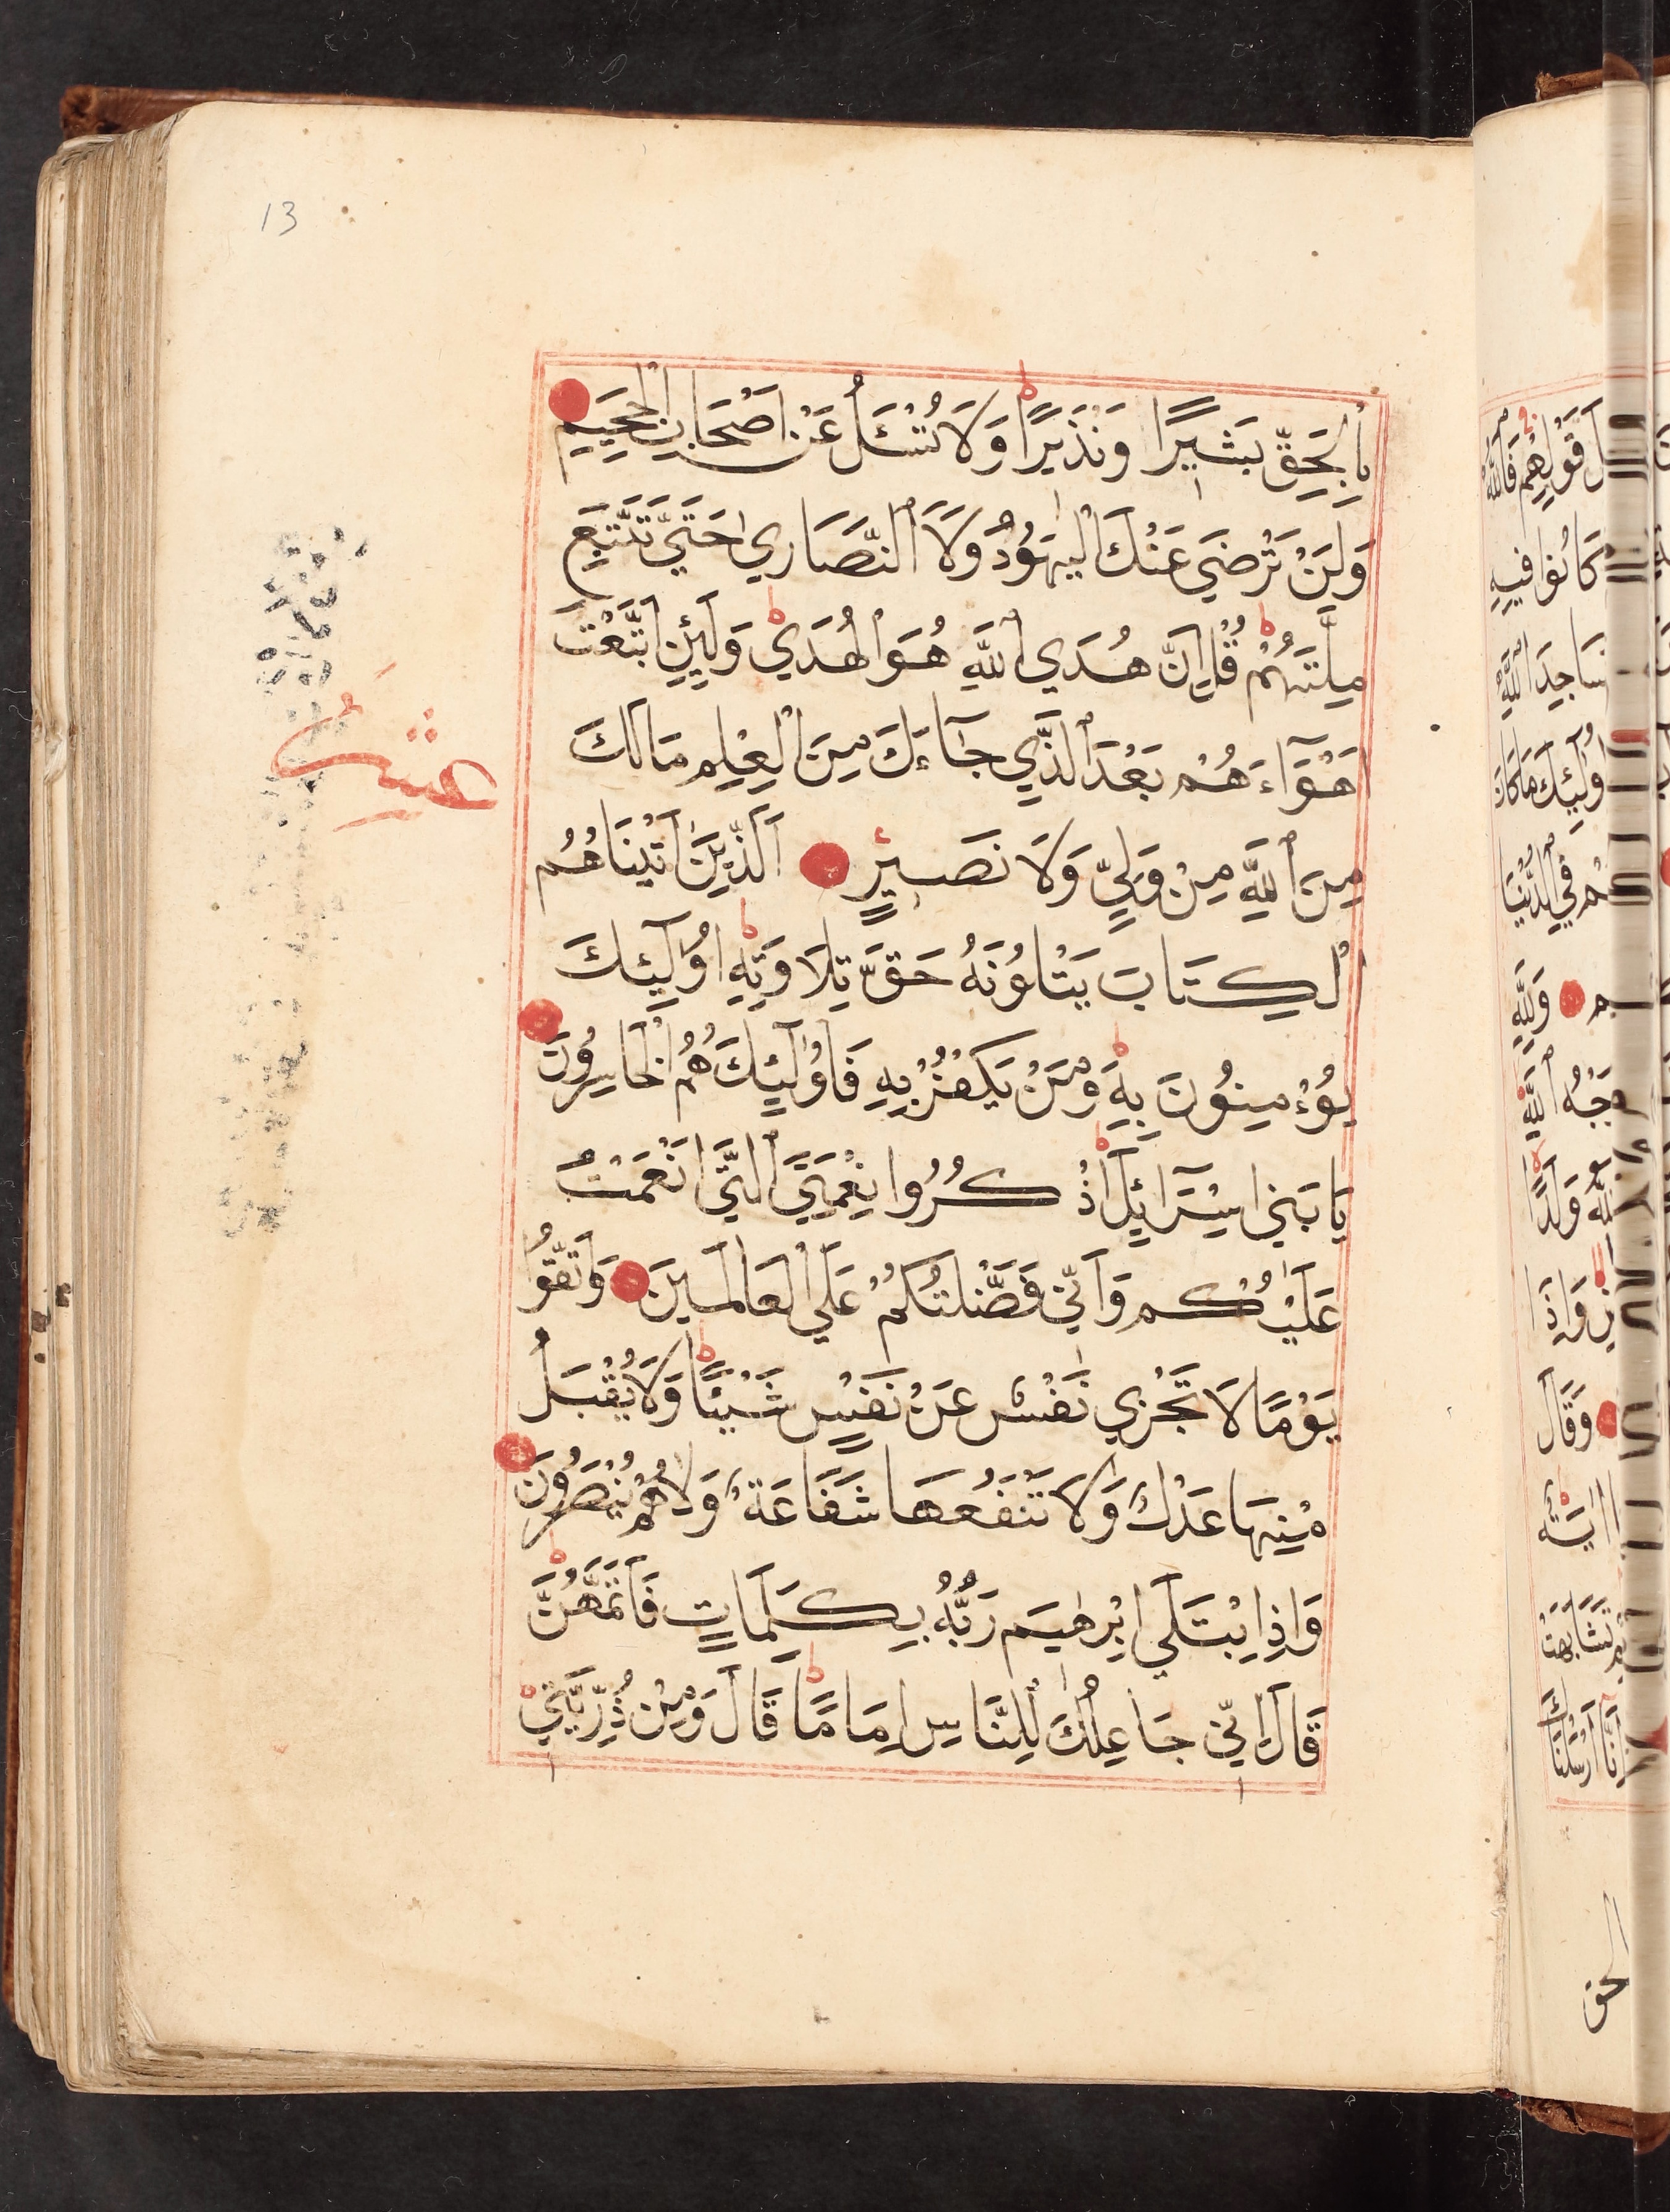 13
بِالْحَقِّ بَشِيرًا وَنَذِيرًا وَلَا تُسْئَلُ عَنْ اَصْحَابِ الْجَحِيمِ
وَلَنْ تَرْضَي عَنْكَ الْيَهُودُ وَلَا النَّصَارٰي حَتَّي تَتَّبِعَ
مِلَّتَهُمْ قُلْ اِنَّ هُدَي اللهِ هُوَ الْهُدَي وَلَئِنِ اتَّبَعْتَ
اَهْوَآءَهُمْ بَعْدَ الَّذِي جَآءَكَ مِنَ الْعِلْمِ مَا لَكَ
مِنَ اللهِ مِنْ وَلِيٍّ وَلَا نَصِيرٍ اَلَّذِينَ اٰتَيْنَاهُمُ
الْكِتَابَ يَتْلُونَهُ حَقَّ تِلَاوَتِهِ اُولٰٓئِكَ
يُؤْمِنُونَ بِهِ وَمَنْ يَكْفُرْ بِهِ فَاُولٰٓئِكَ هُمُ الْخَاسِرُونَ
يَا بَنِي اِسْرَآئِلَ اذْكُرُوا نِعْمَتِيَ الَّتِي اَنْعَمْتُ
عَلَيْكُمْ وَاَنِّي فَضَّلْتُكُمْ عَلَي الْعَالَمِينَ وَاتَّقُوا
يَوْمًا لَا تَجْزِي نَفْسٌ عَنْ نَفْسٍ شَيْئًا وَلَا يُقْبَلُ
مِنْهَا عَدْلٌ وَلَا تَنْفَعُهَا شَفَاعَةٌ وَلَا هُمْ يُنْصَرُونَ
وَاِذِ ابْتَلَي اِبْرٰهِيمَ رَبُّهُ بِكَلِمَاتٍ فَاَتَمَّهُنَّ
قَالَ اِنِّي جَاعِلُكَ لِلنَّاسِ اِمَامًا قَالَ وَمِنْ ذُرِّيَّتِي
عشر
قَوْلِهِمْ فَاللهُ
كَانُوا فِيهِ
مَسَاجِدَ اللهِ
اُولٰئِكَ مَا كَانَ
فِي الدُّنْيَا
وَلِلّهِ
وَجْهُ اللهِ
اللهُ وَلَدًا
وَاِذَا
وَقَالَ
اٰيَةٌ
تَشَابَهَتْ
اِنَّا اَرْسَلْنَاكَ
الحق